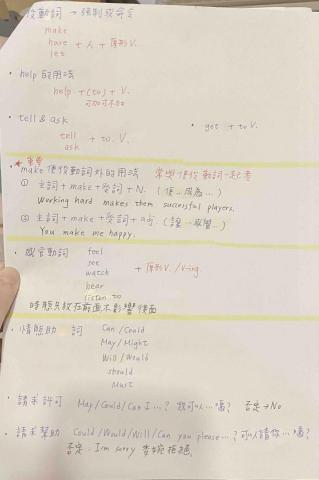 使役動詞 → 強制或命令
make
have + 人 + 原形V.
let
· help 的用法
help + (to) + V.
可加可不加
· tell & ask
tell
ask + to V.
· get + to V.
★ 重要
make 使役動詞外的用法 常與使役動詞一起考
① 主詞 + make + 受詞 + N. (使…成為…)
Working hard makes them successful players.
② 主詞 + make + 受詞 + adj. (讓…感覺…)
You make me happy.
· 感官動詞 feel
see
watch + 原形V. / V-ing.
hear
listen to
時態只放在前面不影響後面
· 情態助詞 Can / Could
May / Might
Will / Would
should
Must
· 請求許可 May / Could / Can I …? 我可以…嗎? 否定→No
· 請求幫助 Could / Would / Will / Can you please …? 可以請你…嗎?
否定: I'm sorry 委婉拒絕